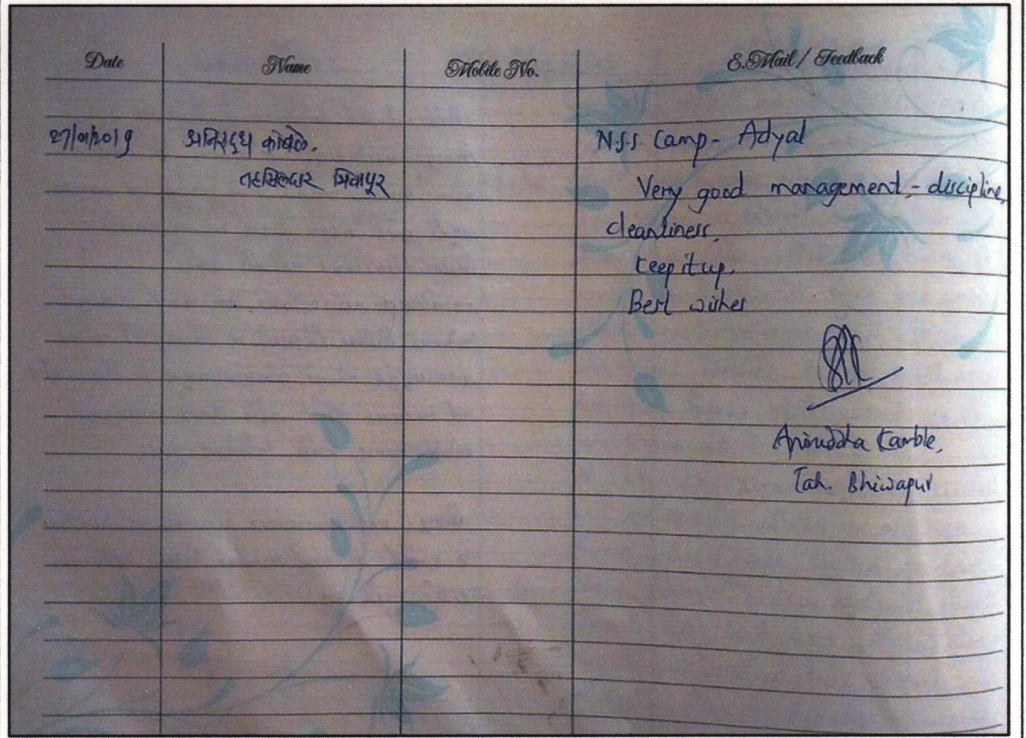 Date Name Mobile No. E.Mail / Feedback
२७/०१/२०१९ अनिरुद्ध कांबळे. N.S.S Camp - Adyal
तहसिलदार भिवापूर Very good management, - discipline,
cleanliness,
keep it up.
Best wishes
Aniruddha Kamble,
Tah. Bhiwapur